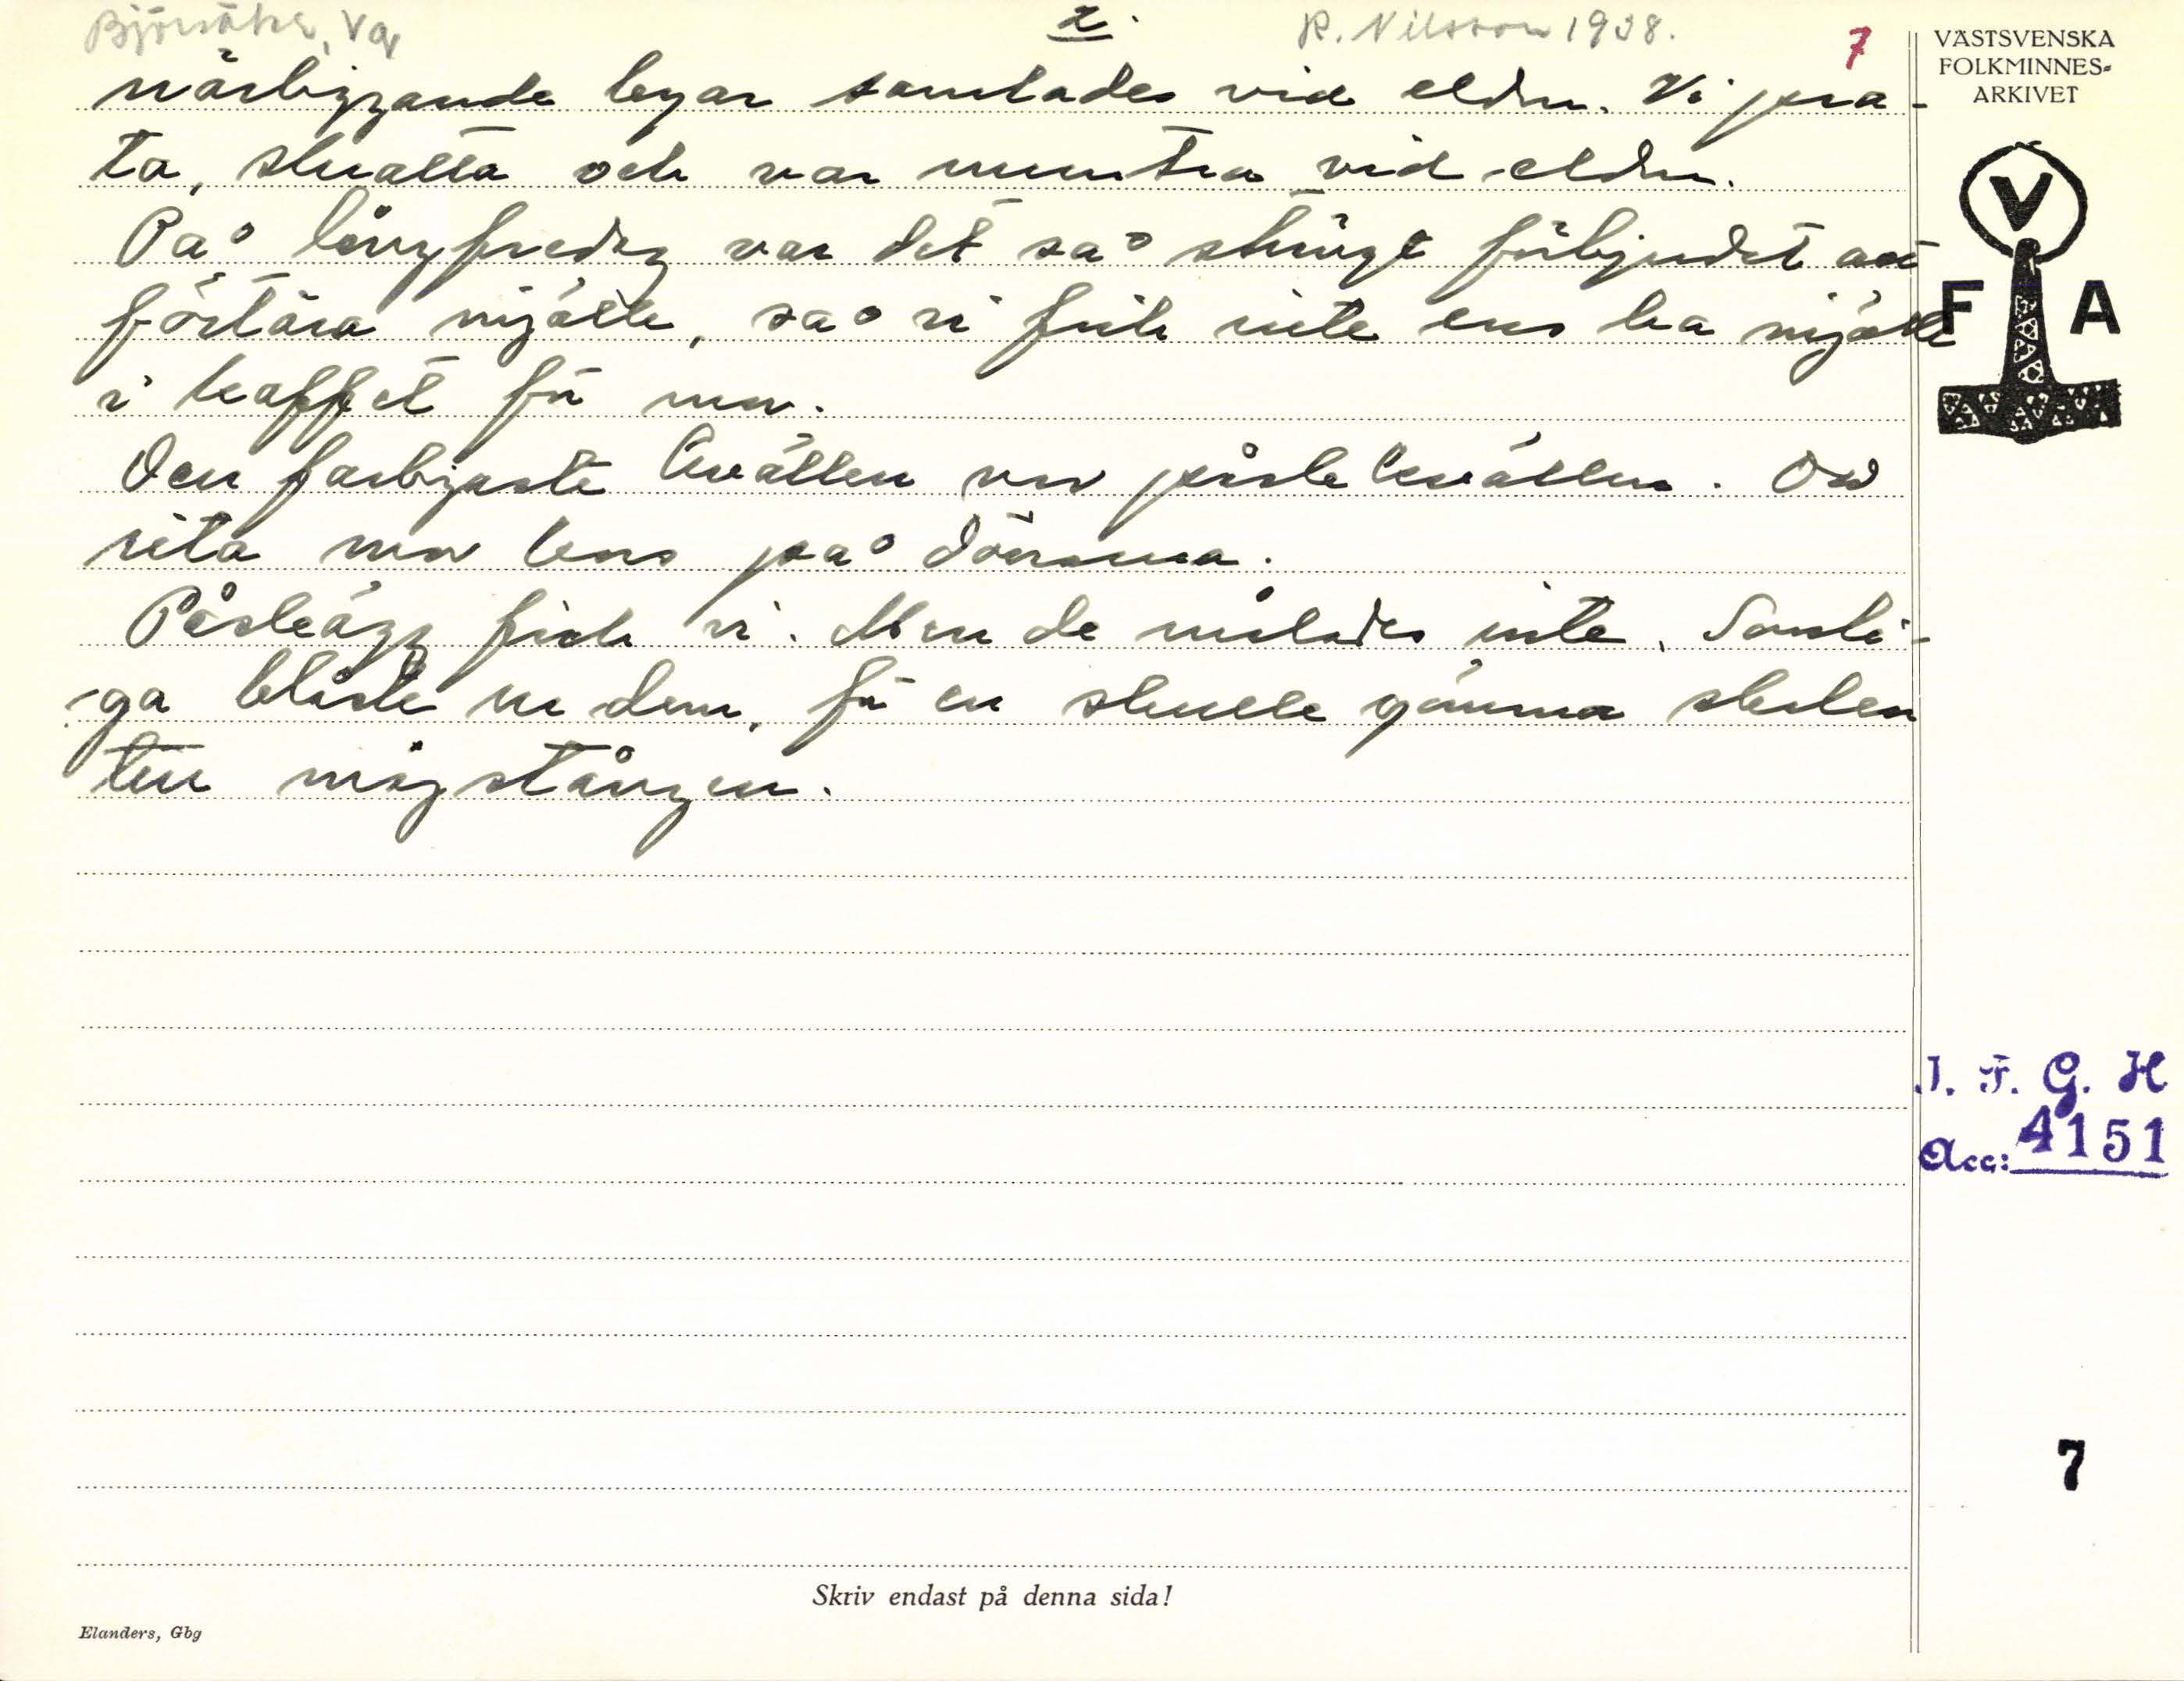 Björsäter, Vg 2. R. Nilsson 1938. 7
närliggande byar samlades vid elden. Vi pra-
ta, skratta och var muntra vid elden.
På långfredag var det så strängt förbjudet att
förtära mjölk, så vi fick inte ens ha mjölk
i kaffet för mor.
Den farligaste kvällen var påskkvällen. Då
rita mor kors på dörrarna.
Påskägg fick vi. Men de målades inte. Somli-
ga blåste ur dem, för en skulle gömma skalen
till majstången.
VÄSTSVENSKA
FOLKMINNES-
ARKIVET
V
F A
I. F. G. H
Acc: 4151
7
Skriv endast på denna sida!
Elanders, Gbg